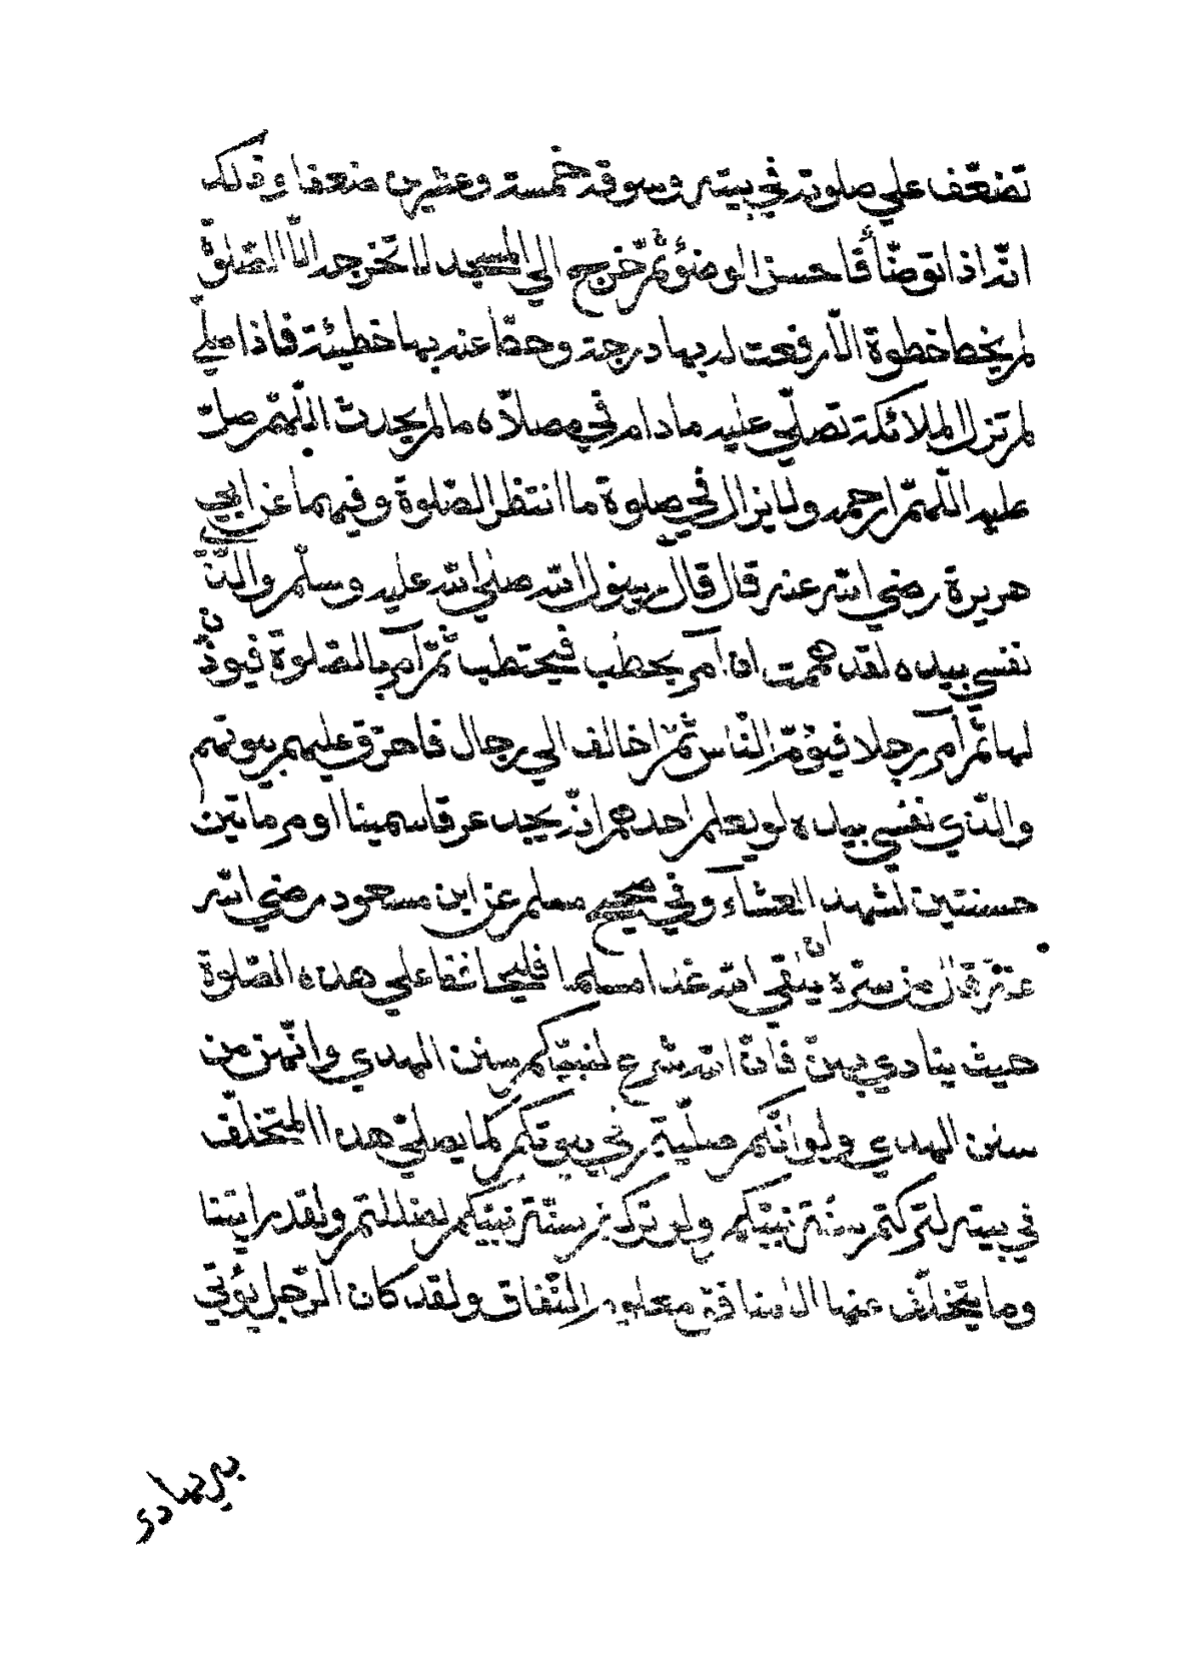 تضعّف علي صلوته في بيته وسوقه خمسة وعشرين ضعفا وذلك
انّه اذا توضّأ فاحسن الوضوء ثمّ خرج الي المسجد لا تخرجه الّا الصّلوة
لم يخط خطوة الّا رفعت له بها درجة وحطّ عنه بها خطيئة فاذا صلّي
لم تزل الملائكة تصلّي عليه ما دام في مصلّاه ما لم يحدث اللّهمّ صلّ
عليه اللّهمّ ارحمه ولا يزال في صلوة ما انتظر الصّلوة وفيهما عن ابي
هريرة رضي الله عنه قال قال رسول الله صلي الله عليه وسلّم والّذي
نفسي بيده لقد هممت ان آمر بحطب فيحتطب ثمّ آمر بالصّلوة فيوذّن
لها ثمّ آمر رجلا فيؤمّ النّاس ثمّ اخالف الي رجال فاحرّق عليهم بيوتهم
والّذي نفسي بيده لو يعلم احدهم انّه يجد عرقا سمينا او مرماتين
حسنتين لشهد العشآء وفي صحيح مسلم عن ابن مسعود رضي الله
عنه قال من سرّه ان يلقي الله غدا مسلما فليحافظ علي هذه الصّلوة
حيث ينادي بهنّ فانّ الله شرع لنبيّكم سنن الهدي وانّهنّ من
سنن الهدي ولو انّكم صلّيتم في بيوتكم كما يصلي هذا المتخلّف
في بيته لتركتم سنّة نبيّكم ولو تركتم سنّة نبيّكم لضللتم ولقد رايتنا
وما يتخلّف عنها الّا منافق معلوم النّفاق ولقد كان الرّجل يؤتي